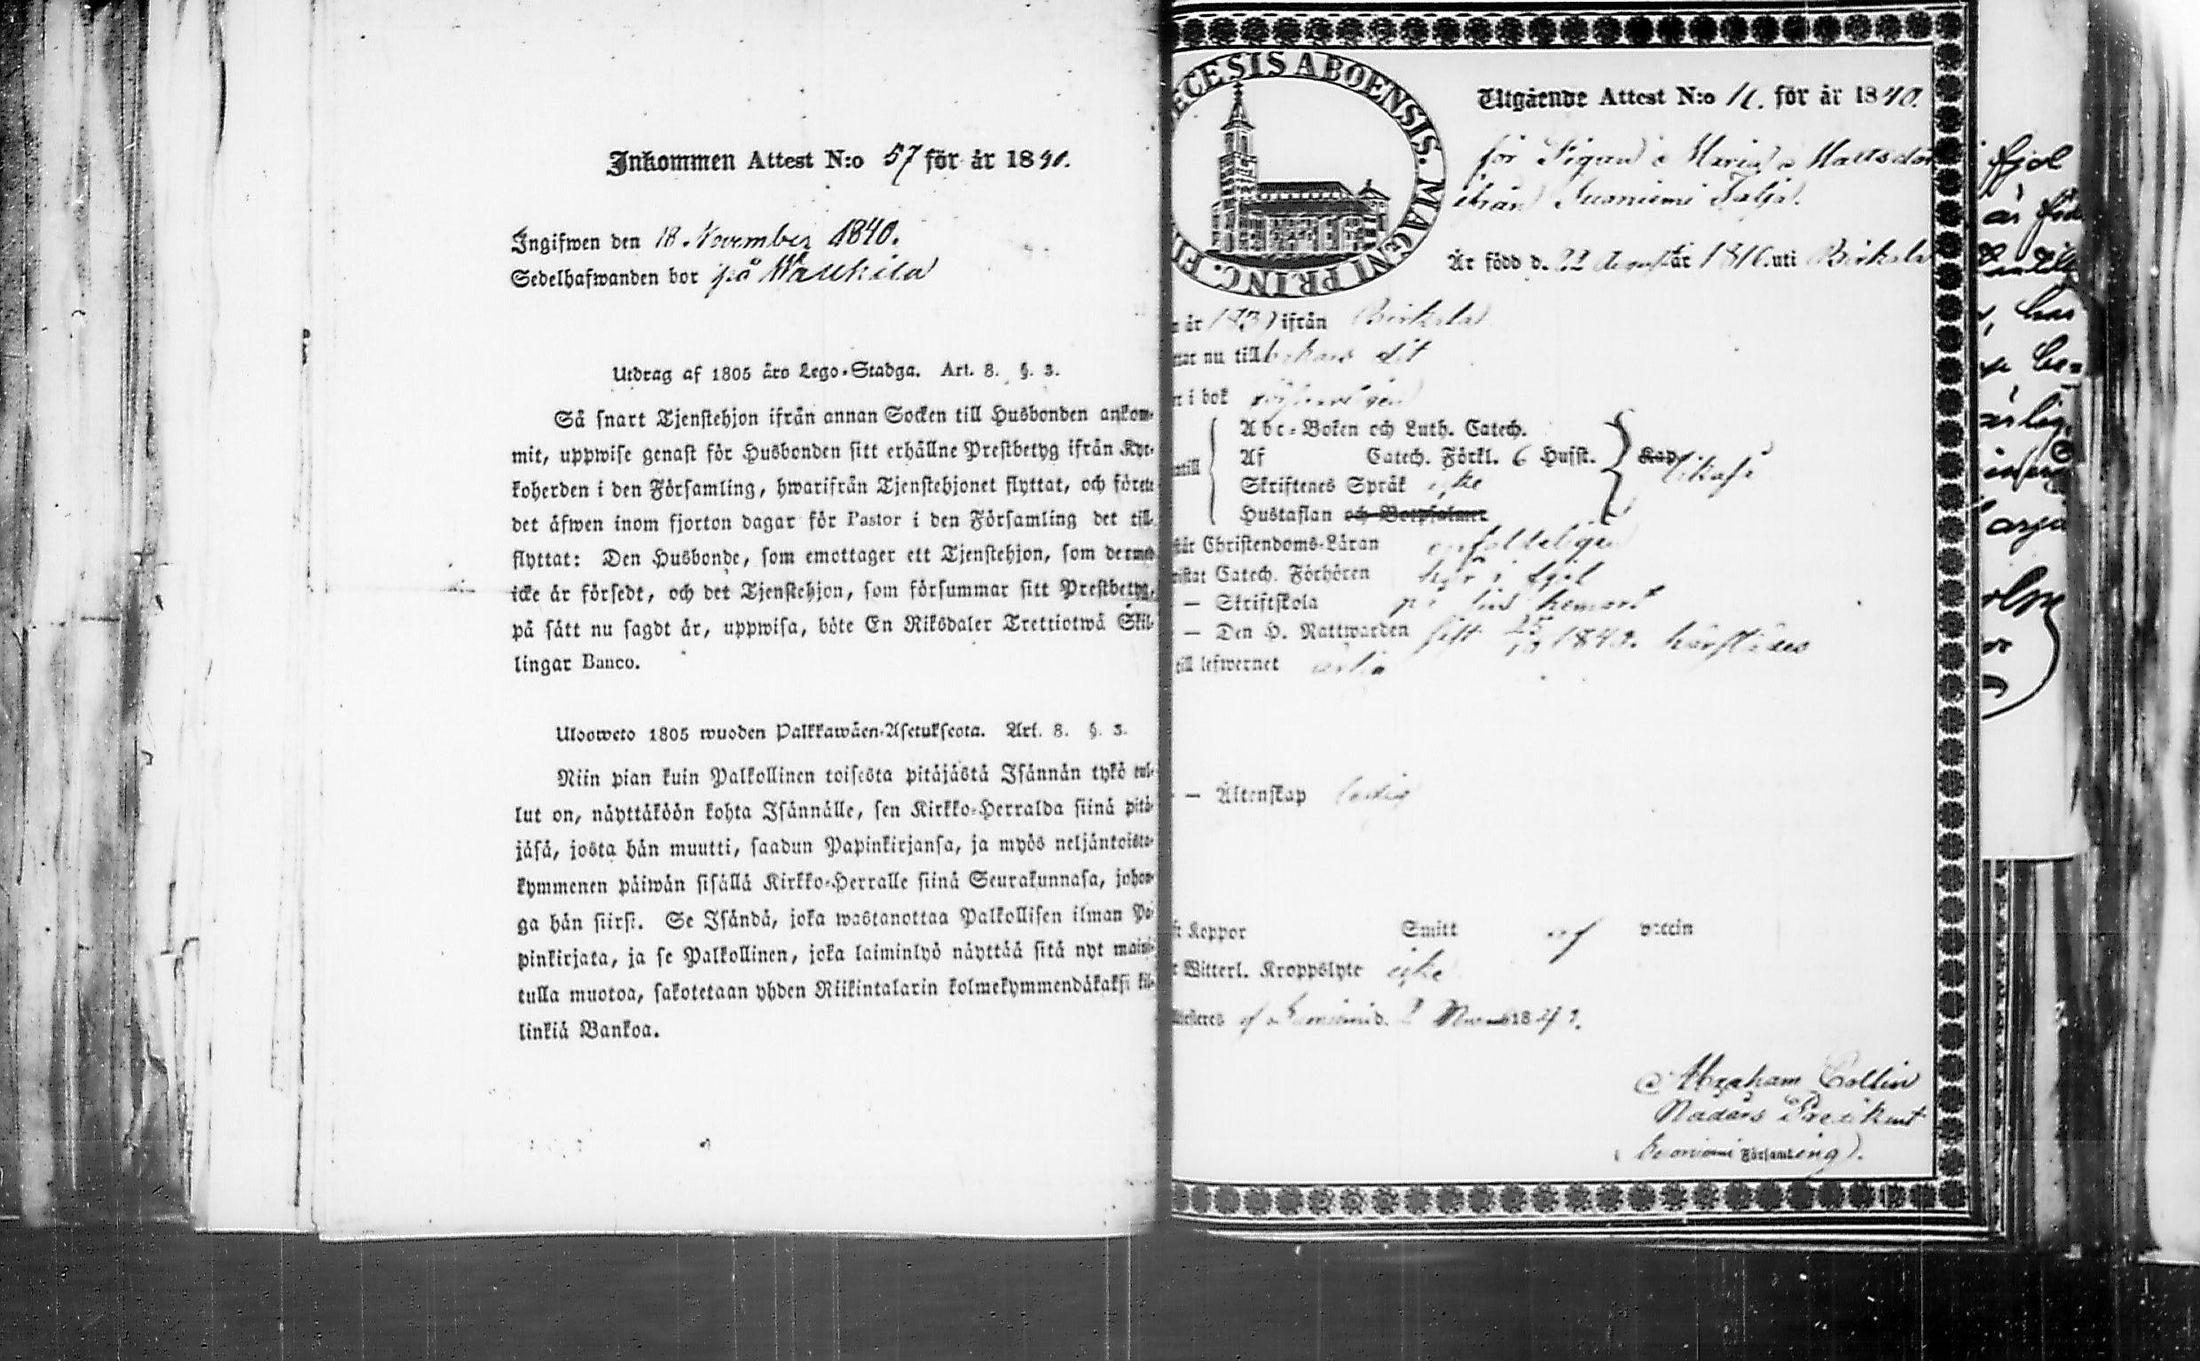 Inkommen Attest N:o 57 för år 1840.
Ingifwen den 18 November 1840.
Sedelhafwanden bor på Waukila
Utdrag af 1805 års Lego-Stadga. Art. 8. §. 3.
Så snart Tjenstehjon ifrån annan Socken till Husbonden ankom-
mit, uppwise genast för Husbonden sitt erhållne Prestbetyg ifrån Kyr-
koherden i den Församling, hwarifrån Tjenstehjonet flyttat, och förete
det äfwen inom fjorton dagar för Pastor i den Församling det till-
flyttat: Den Husbonde, som emottager ett Tjenstehjon, som dermed
icke är försedt, och det Tjenstehjon, som försummar sitt Prestbetyg,
på sätt nu sagdt är, uppwisa, böte En Riksdaler Trettiotwå Skil-
lingar Banco.
Ulosweto 1805 wuoden Palkkawäen-Asetuksesta. Art. 8. §. 3.
Niin pian kuin Palkollinen toisesta pitäjästä Isännän tykö tul-
lut on, näyttäköön kohta Isännälle, sen Kirkko-Herralda siinä pitä-
jäsä, josta hän muutti, saadun Papinkirjansa, ja myös neljäntoista-
kymmenen päiwän sisällä Kirkko-Herralle siinä Seurakunnasa, johon-
ga hän siirsi. Se Isändä, joka wastanottaa Palkollisen ilman Pa-
pinkirjata, ja se Palkollinen, joka laiminlyö näyttää sitä nyt maini-
tulla muotoa, sakotetaan yhden Riikintalarin kolmekymmendäkaksi kil-
linkiä Bankoa.
ECESIS ABOENSIS. MAGNI PRINC. FI
Utgående Attest N:o 11. för år 1840.
för Pigan Maria Mattsdr
ifrån Suoniemi
Är född d. 22 August år 1816 uti Birkala
år 1837 ifrån Birkala
nu till bakars dit
i bok
Abc-Boken och Luth. Catech.
Af Catech. Förkl. 6 Husst.
Skriftenes Språk icke
Hustaflan och Botpsalmer
Christendoms-Läran enfaldeligen
Catech. Förhören
— Skriftskola
— Den H. Nattwarden sist 25/10 1840. härstädes
till lefwernet ärlig
— Äktenskap ledig
Koppor Smitt af vaccin
Witterl. Kroppslyte icke
af Suoniemi d. 2 Nov 1840.
Abraham Collin
Nådårs Predikant
i Suoniemi Församling.
fjol
är född
har